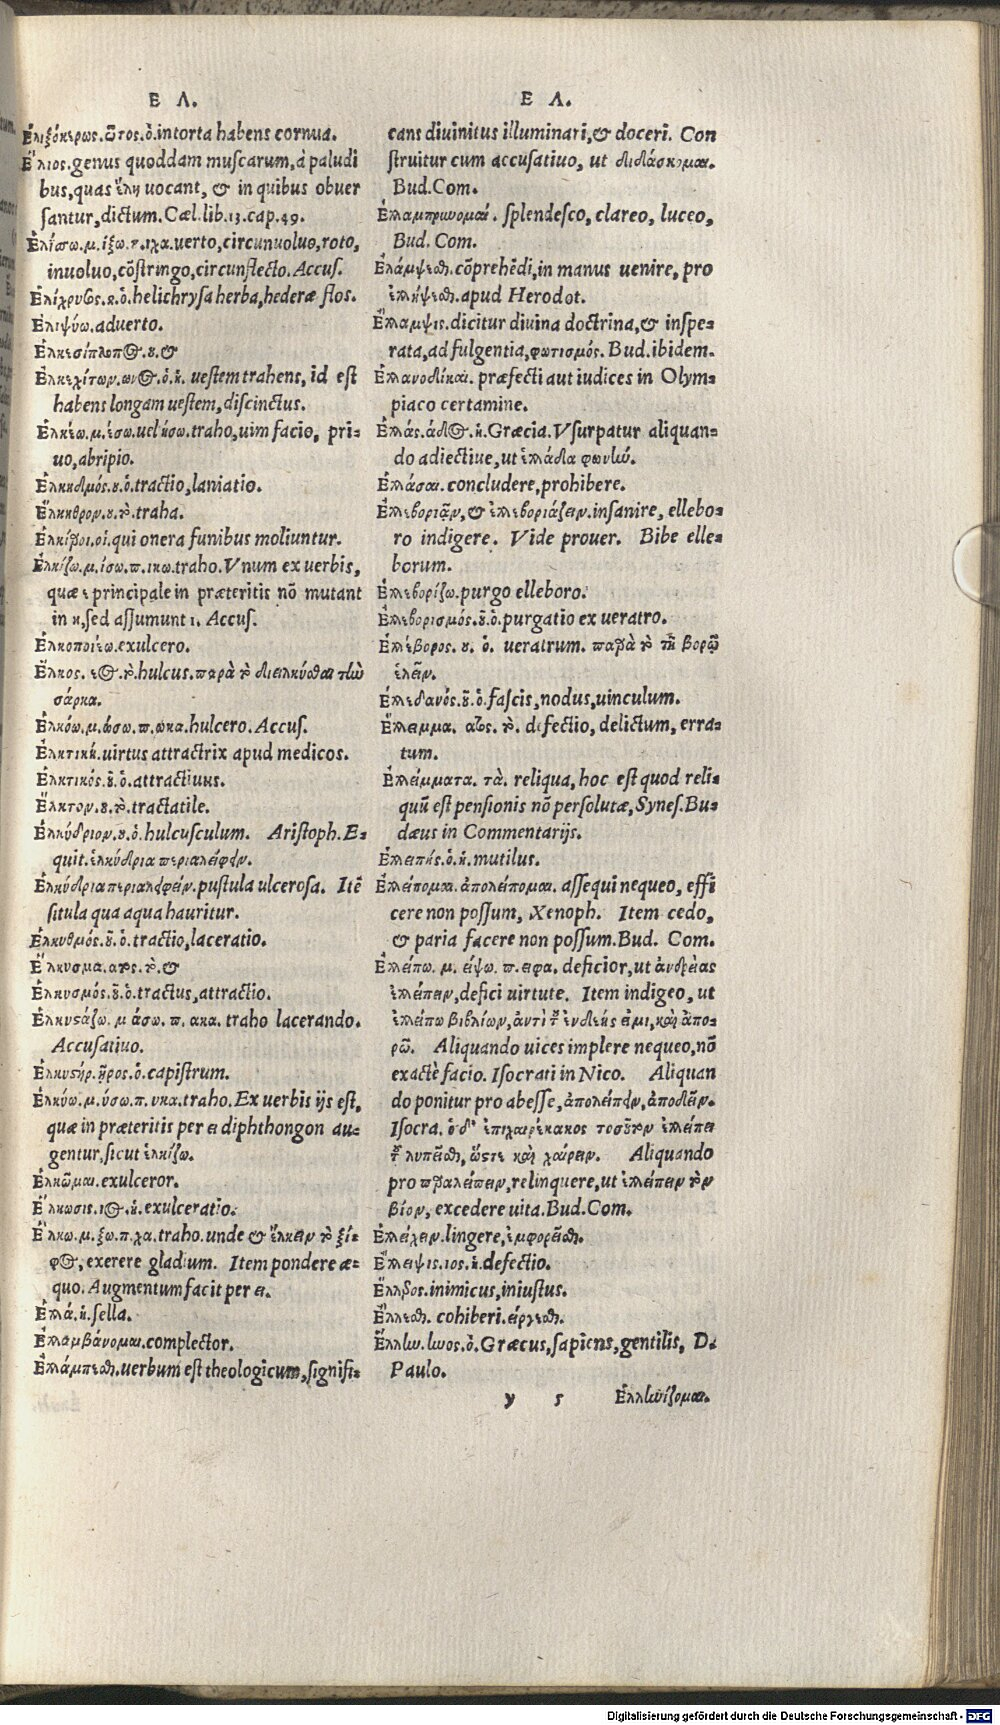 Ε Λ.
Ἑλιξόκερως.ωτος.ὁ.intorta habens cornua.
Ἕλιος.genus quoddam muscarum,à paludi
bus,quas ἕλη uocant, & in quibus obuer
santur,dictum. Cæl.lib.13.cap.49.
Ἑλίσσω.μ.ίξω.π.ιχα.uerto,circunuoluo,roto,
inuoluo,cōstringo,circunflecto.Accus.
Ἑλίχρυσος.ου.ὁ.helichrysa herba,hederæ flos.
Ἑλιψύω.aduerto.
Ἑλκεσίπλοπος.ου.&
Ἑλκεχίτων.ωνος.ὁ.ἡ. uestem trahens, id est
habens longam uestem,discinctus.
Ἑλκέω.μ.έσω.uel ήσω.traho,uim facio, pri-
uo,abripio.
Ἑλκηδμός.οῦ.ὁ.tractio,laniatio.
Ἕλκηθρον.ου.τὸ.traha.
Ἑλκίβοι.οἱ.qui onera funibus moliuntur.
Ἑλκίζω.μ.ίσω.π.ικω.traho.Vnum ex uerbis,
quæ ε principale in præteritis nō mutant
in η,sed assumunt ι. Accus.
Ἑλκοποιέω.exulcero.
Ἕλκος. εος.τὸ.hulcus.παρὰ τὸ διελκύσθαι τὴν
σάρκα.
Ἑλκόω.μ.ώσω.π.ωκα.hulcero.Accus.
Ἑλκτική.uirtus attractrix apud medicos.
Ἑλκτικός.οῦ.ὁ.attractiuus.
Ἕλκτον.ου.τὸ.tractatile.
Ἑλκύδριον.ου.ὁ.hulcusculum. Aristoph.E-
quit.ἑλκύδρια περιαλείφειν.
Ἑλκύδριαπεριαλείφειν.pustula ulcerosa. Itē
situla qua aqua hauritur.
Ἑλκυθμός.οῦ.ὁ.tractio,laceratio.
Ἕλκυσμα.ατος.τὸ.&
Ἑλκυσμός.οῦ.ὁ.tractus,attractio.
Ἑλκυστάζω.μ άσω.π.ακα. traho lacerando.
Accusatiuo.
Ἑλκυστήρ.ῆρος.ὁ.capistrum.
Ἑλκύω.μ.ύσω.π.υκα.traho.Ex uerbis ijs est,
quæ in præteritis per ει diphthongon au-
gentur,sicut ἑλκίζω.
Ἑλκῶμαι.exulceror.
Ἕλκωσις.ιος.ἡ.exulceratio.
Ἕλκω.μ.ξω.π.χα.traho.unde & ἕλκειν τὸ ξί-
φος, exerere gladium. Item pondere æ-
quo.Augmentum facit per ει.
Ἑλλά.ἡ.sella.
Ἐλλαμβάνομαι.complector.
Ἐλλάμπεσθαι.uerbum est theologicum,signifi-
Ε Λ.
cans diuinitus illuminari,& doceri. Con
struitur cum accusatiuo, ut διδάσκομαι.
Bud.Com.
Ἐλλαμπρύνομαι. splendesco, clareo, luceo,
Bud. Com.
Ἐλλάμψεσθαι.cōprehēdi,in manus uenire, pro
ἐλλήψεσθαι.apud Herodot.
Ἔλλαμψις.dicitur diuina doctrina,& inspe-
rata,ad fulgentia,φωτισμός. Bud.ibidem.
Ἑλλανοδίκαι. præfecti aut iudices in Olym-
piaco certamine.
Ἑλλάς.άδος.ἡ.Græcia.Vsurpatur aliquan-
do adiectiue,ut ἑλλάδα φωνήν.
Ἐλλάσαι.concludere,prohibere.
Ἑλλεβοριᾷν,& ἑλλεβοριάζειν.insanire, ellebo-
ro indigere. Vide prouer. Bibe elle-
borum.
Ἑλλεβορίζω.purgo elleboro.
Ἑλλεβορισμός.οῦ.ὁ.purgatio ex ueratro.
Ἑλλέβορος. ου. ὁ. ueratrum. παρὰ τὸ τῇ βορᾷ
ἑλεῖν.
Ἐλλεδανός.οῦ.ὁ.fascis,nodus,uinculum.
Ἔλλειμμα. ατος. τὸ. defectio, delictum, erra-
tum.
Ἐλλείμματα. τὰ. reliqua, hoc est quod reli-
quū est pensionis nō persolutæ, Synes.Bu-
dæus in Commentarijs.
Ἐλλειπής.ὁ.ἡ.mutilus.
Ἐλλείπομαι.ἀπολείπομαι. assequi nequeo, effi
cere non possum, Xenoph. Item cedo,
& paria facere non possum.Bud. Com.
Ἐλλείπω. μ. είψω. π. ειφα. deficior,ut ἀνδρείας
ἐλλείπειν,defici uirtute. Item indigeo, ut
ἐλλείπω βιβλίων,ἀντὶ τοῦ ἐνδεής εἰμι,καὶ ἀπο-
ρῶ. Aliquando uices implere nequeo,nō
exactè facio. Isocrati in Nico. Aliquan
do ponitur pro abesse,ἀπολείπειν,ἀποδεῖν.
Isocra. ὁ δ' ἐπιχαιρέκακος τοσοῦτον ἐλλείπει
τοῦ λυπεῖσθαι, ὥστε καὶ χαίρειν. Aliquando
pro παραλείπειν,relinquere,ut ἐλλείπειν τὸν
βίον, excedere uita.Bud.Com.
Ἐλλείχειν.lingere,ἐμφορεῖσθαι.
Ἔλλειψις.ιος.ἡ.defectio.
Ἔλληρος.inimicus,iniustus.
Ἔλλεσθαι. cohiberi.είργεσθαι.
Ἕλλην.ηνος.ὁ.Græcus,sapiens,gentilis, D.
Paulo.
y 5 Ἑλληνίζομαι.
Digitalisierung gefördert durch die Deutsche Forschungsgemeinschaft - DFG